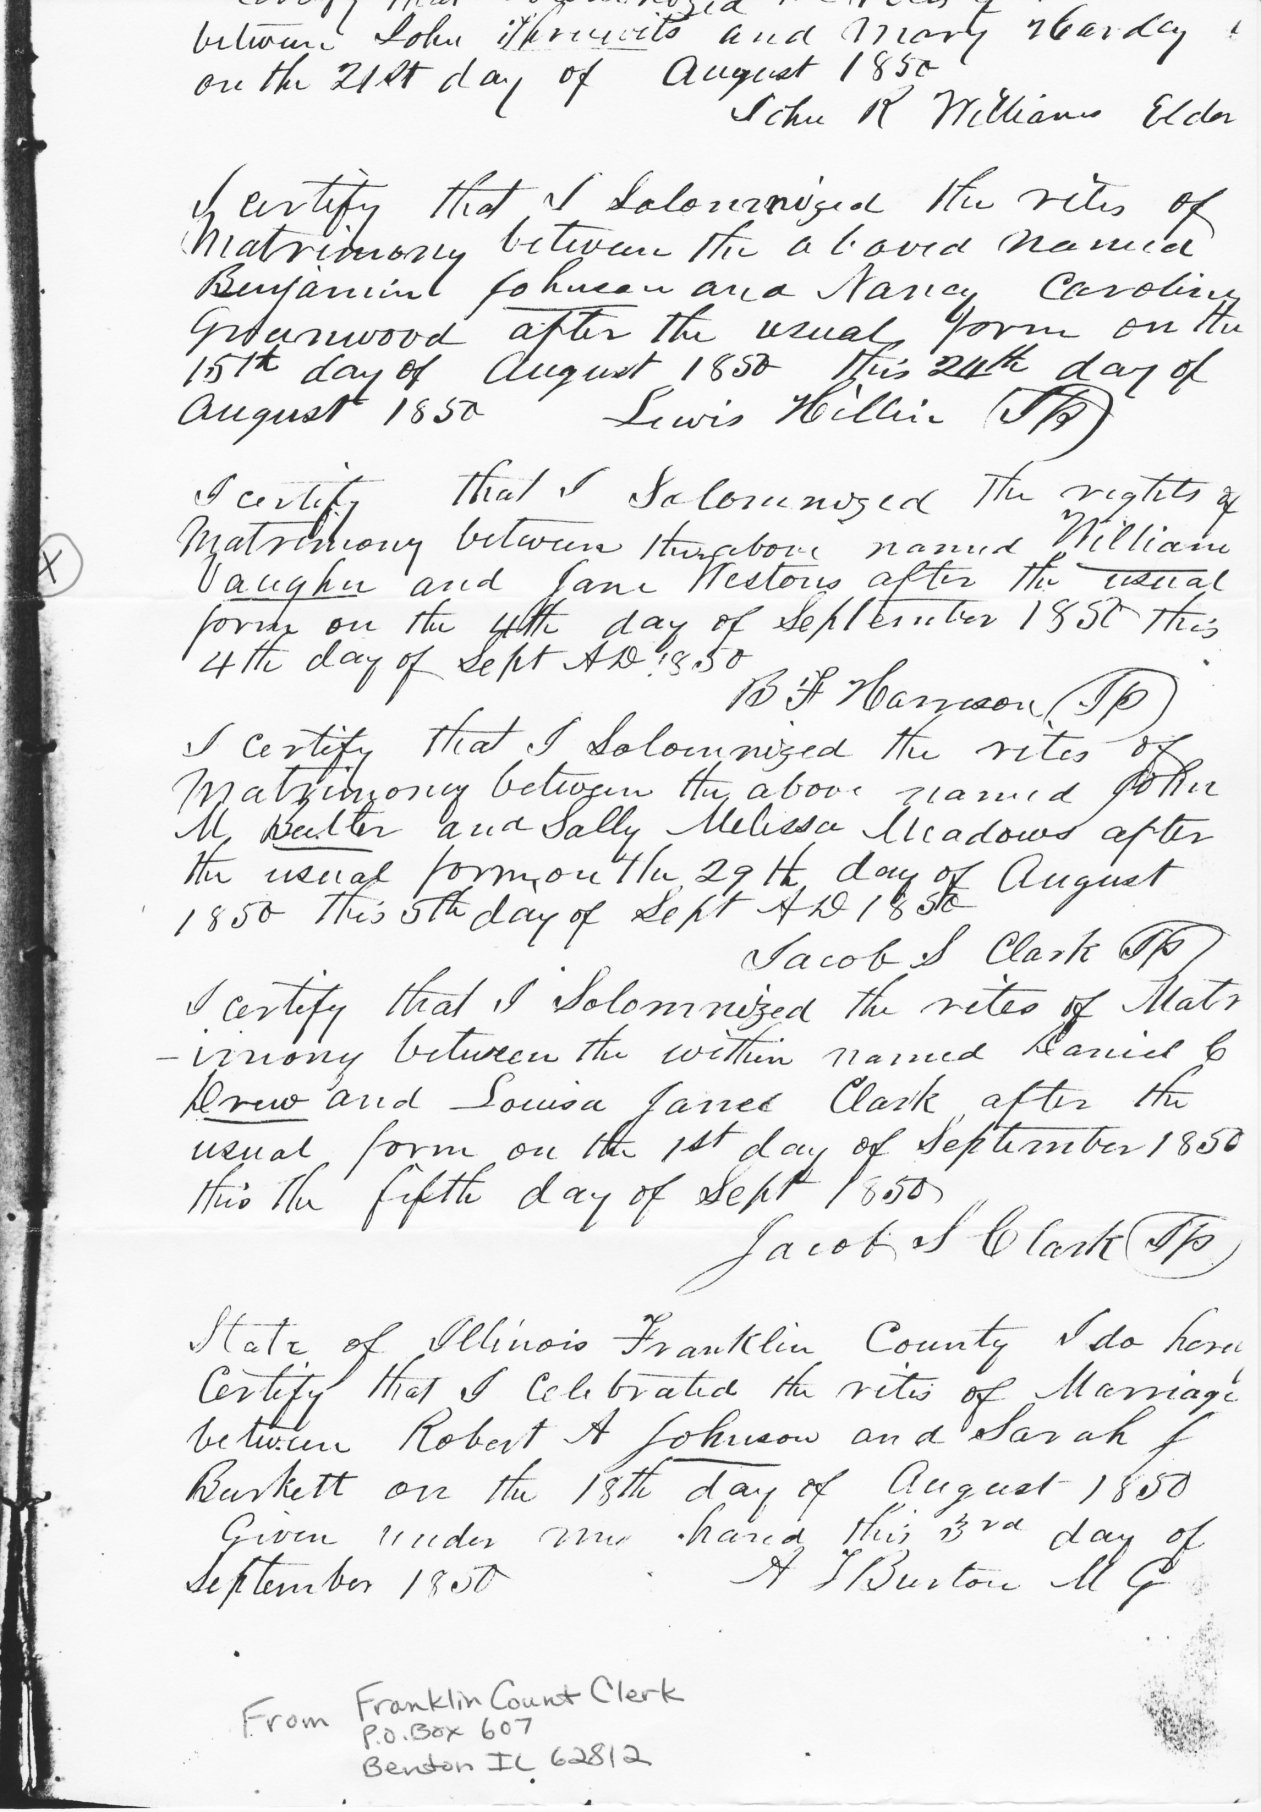 between John and Mary Harday
on the 21st day of August 1850
John R Williams Elder
I certify that I Solomnized the rites of
Matrimony between the aboved named
Benjamin Johnson and Nancy Caroline
Greenwood after the usual form on the
15th day of August 1850 this 24th day of
August 1850 Lewis Hillin (JP)
I certify that I Solomnized the rights of
Matrimony between the above named William
Vaughn and Jane Westons after the usual
form on the 4th day of September 1850 this
4th day of Sept AD 1850
B F Harrison (JP)
I certify that I Solomnized the rites of
Matrimony between the above named John
M and Sally Melissa Meadows after
the usual form on the 29th day of August
1850 this 5th day of Sept AD 1850
Jacob S Clark (JP)
I certify that I Solomnized the rites of Matr
-imony between the within named Daniel C
Drew and Louisa Janee Clark after the
usual form on the 1st day of September 1850
this the fifth day of Sept 1850
Jacob S Clark (JP)
State of Illinois Franklin County I do here
Certify that I Celebrated the rites of Marriage
between Robert A Johnson and Sarah J
Burkett on the 18th day of August 1850
Given under my hand this 3rd day of
September 1850 A T Burton M G
X
From Franklin Count Clerk
P.O. Box 607
Benton IL 62812